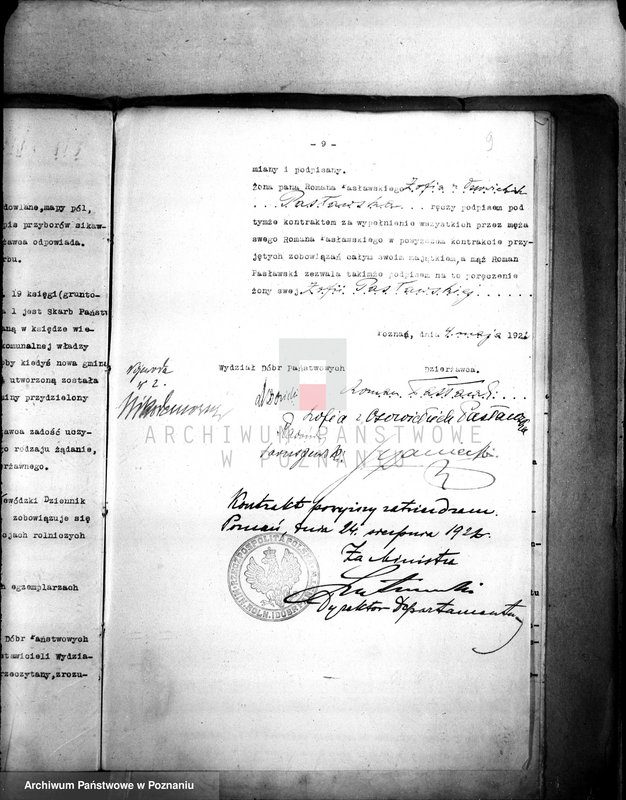 - 9 -
9
miany i podpisany.
żona pana Romana Pasławskiego Zofia z
Pasławska ręczy podpisem pod
tymże kontraktem za wypełnienie wszystkich przez męża
swego Romana Pasławskiego w powyższem kontrakcie przy-
jętych zobowiązań całym swoim majątkiem, a mąż Roman
Pasławski zezwala takimże podpisem na to poręczenie
żony swej Zofii Pasławskiej
Poznań, dnia 4 maja 1922
Wydział Dóbr Państwowych
Dzierżawca.
Roman Pasławski
Zofia z Pasławska
ARCHIWUM PAŃSTWOWE
W POZNANIU
Kontrakt powyższy zatwierdzam.
Poznań, dnia 24 sierpnia 1922.
Za Ministra
Dyrektor Departamentu
dowlane, mapy pól,
pis przyborów sikaw-
żawca odpowiada.
rbu.
19 księgi (grunto-
a 1 jest Skarb Państ
aną w księdze wie-
komunalnej władzy
by kiedyś nowa gmin
utworzoną została
miny przydzielony
awca zadość uczy-
o rodzaju żądanie,
rżawnego.
ewódzki Dziennik
zobowiązuje się
cjach rolniczych
h egzemplarzach
Dóbr Państwowych
stawicieli Wydzia-
rzeczytany, zrozu-
Archiwum Państwowe w Poznaniu